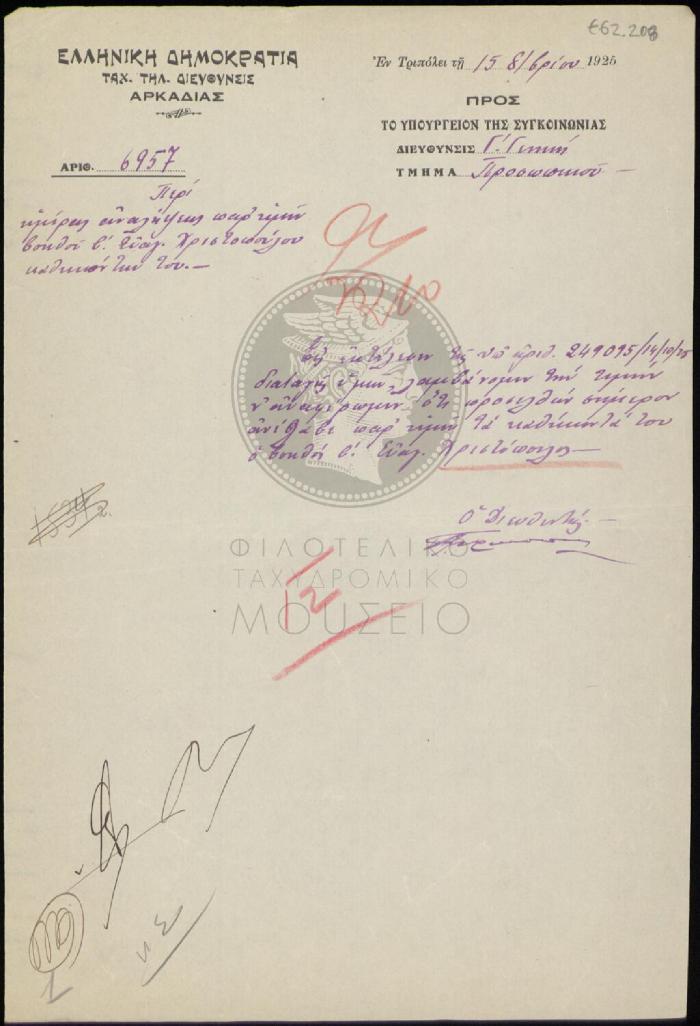 Є62.208
ΕΛΛΗΝΙΚΗ ΔΗΜΟΚΡΑΤΙΑ
ΤΑΧ. ΤΗΛ. ΔΙΕΥΘΥΝΣΙΣ
ΑΡΚΑΔΙΑΣ
ΑΡΙΘ. 6957
Ἐν Τριπόλει τῇ 15 8/βρίου 1925
ΠΡΟΣ
ΤΟ ΥΠΟΥΡΓΕΙΟΝ ΤΗΣ ΣΥΓΚΟΙΝΩΝΙΑΣ
ΔΙΕΥΘΥΝΣΙΣ Γ'. Γενική
ΤΜΗΜΑ Προσωπικοῦ –
Περί
ἡμέρας ἀναλήψεως παρ' ἡμῖν
βοηθοῦ β'. Εὐαγ. Χριστοπούλου
καθηκόντων του. –
Εἰς ἐκτέλεσιν τῆς ὑπ' ἀριθ. 249095/14/10/25
διαταγῆς ὑμῶν, λαμβάνομεν τὴν τιμήν
ν' ἀναφέρωμεν ὅτι προσελθών σήμερον
ἀνέλαβε παρ' ἡμῖν τά καθήκοντά του
ὁ βοηθός β'. Εὐαγ. Χριστόπουλος –
Ὁ Διευθυντής. –
ΦΙΛΟΤΕΛΙΚΟ
ΤΑΧΥΔΡΟΜΙΚΟ
ΜΟΥΣΕΙΟ